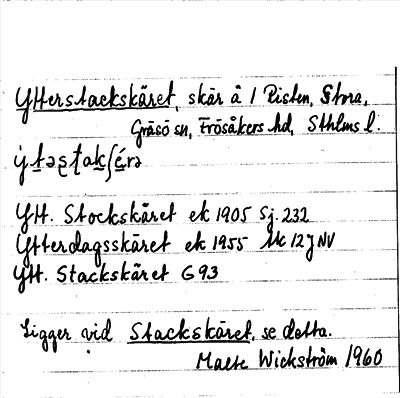 Ytterstackskäret, skär å l Risten, Stora,
Gräsö sn, Frösåkers hd, Sthlms l.
Ytt. Stockskäret ek 1905 Sj. 232
Ytterdagsskäret ek 1955 12J NV
Ytt. Stackskäret G 93
Ligger vid Stackskäret, se detta.
Malte Wickström 1960